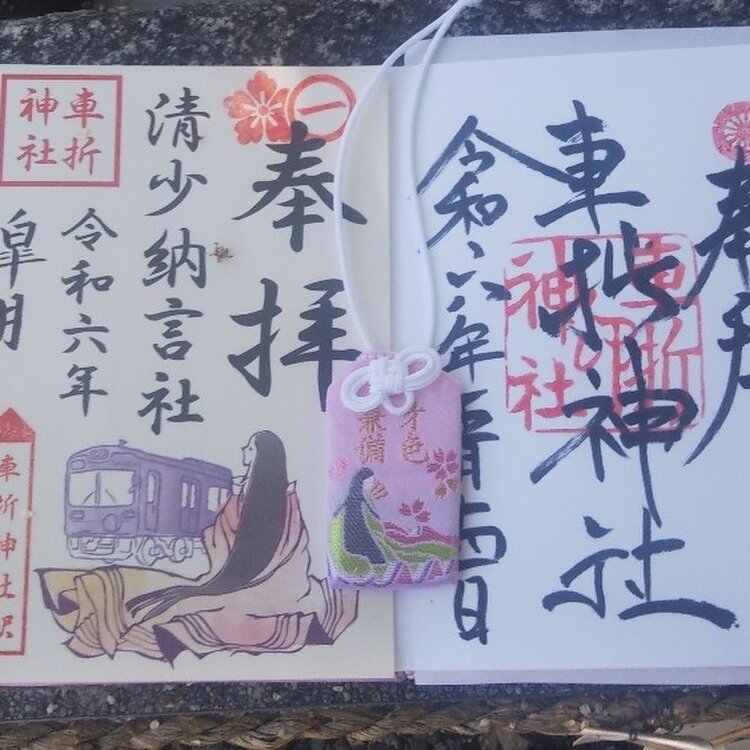 一
奉拝
清少納言社
令和六年
皐月
車折
神社
車折神社駅
才色
兼備
奉拝
車折神社
車折
神社
令和六年五月四日